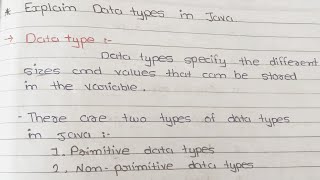 * Explain Data types in Java
→ Data type :-
Data types specify the different
sizes and values that can be stored
in the variable.
- There are two types of data types
in java :-
1. Primitive data types
2. Non-primitive data types